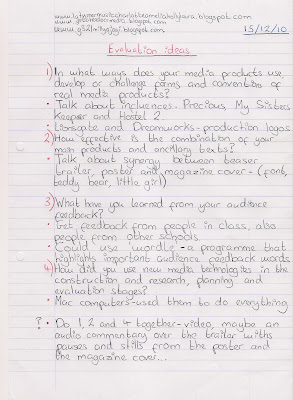 15/12/10
Evaluation ideas
1) In what ways does your media products use,
develop or challenge forms and conventions of
real media products?
• Talk about influences - Precious, My Sisters
Keeper and Hostel 2
• Lionsgate and Dreamworks - production logos
2) How effective is the combination of your
main products and ancillary texts?
• Talk about synergy between teaser
trailer, poster and magazine cover - (font,
teddy bear, little girl)
3) What have you learned from your audience
feedback?
• Get feedback from people in class, also
people from other schools
• Could use wordle - a programme that
highlights important audience feedback words
4) How did you use new media technologies in the
construction and research, planning and
evaluation stages?
• Mac computers - used them to do everything
? • Do 1, 2 and 4 together - video, maybe an
audio commentary over the trailer with
pauses and stills from the poster and
the magazine cover...